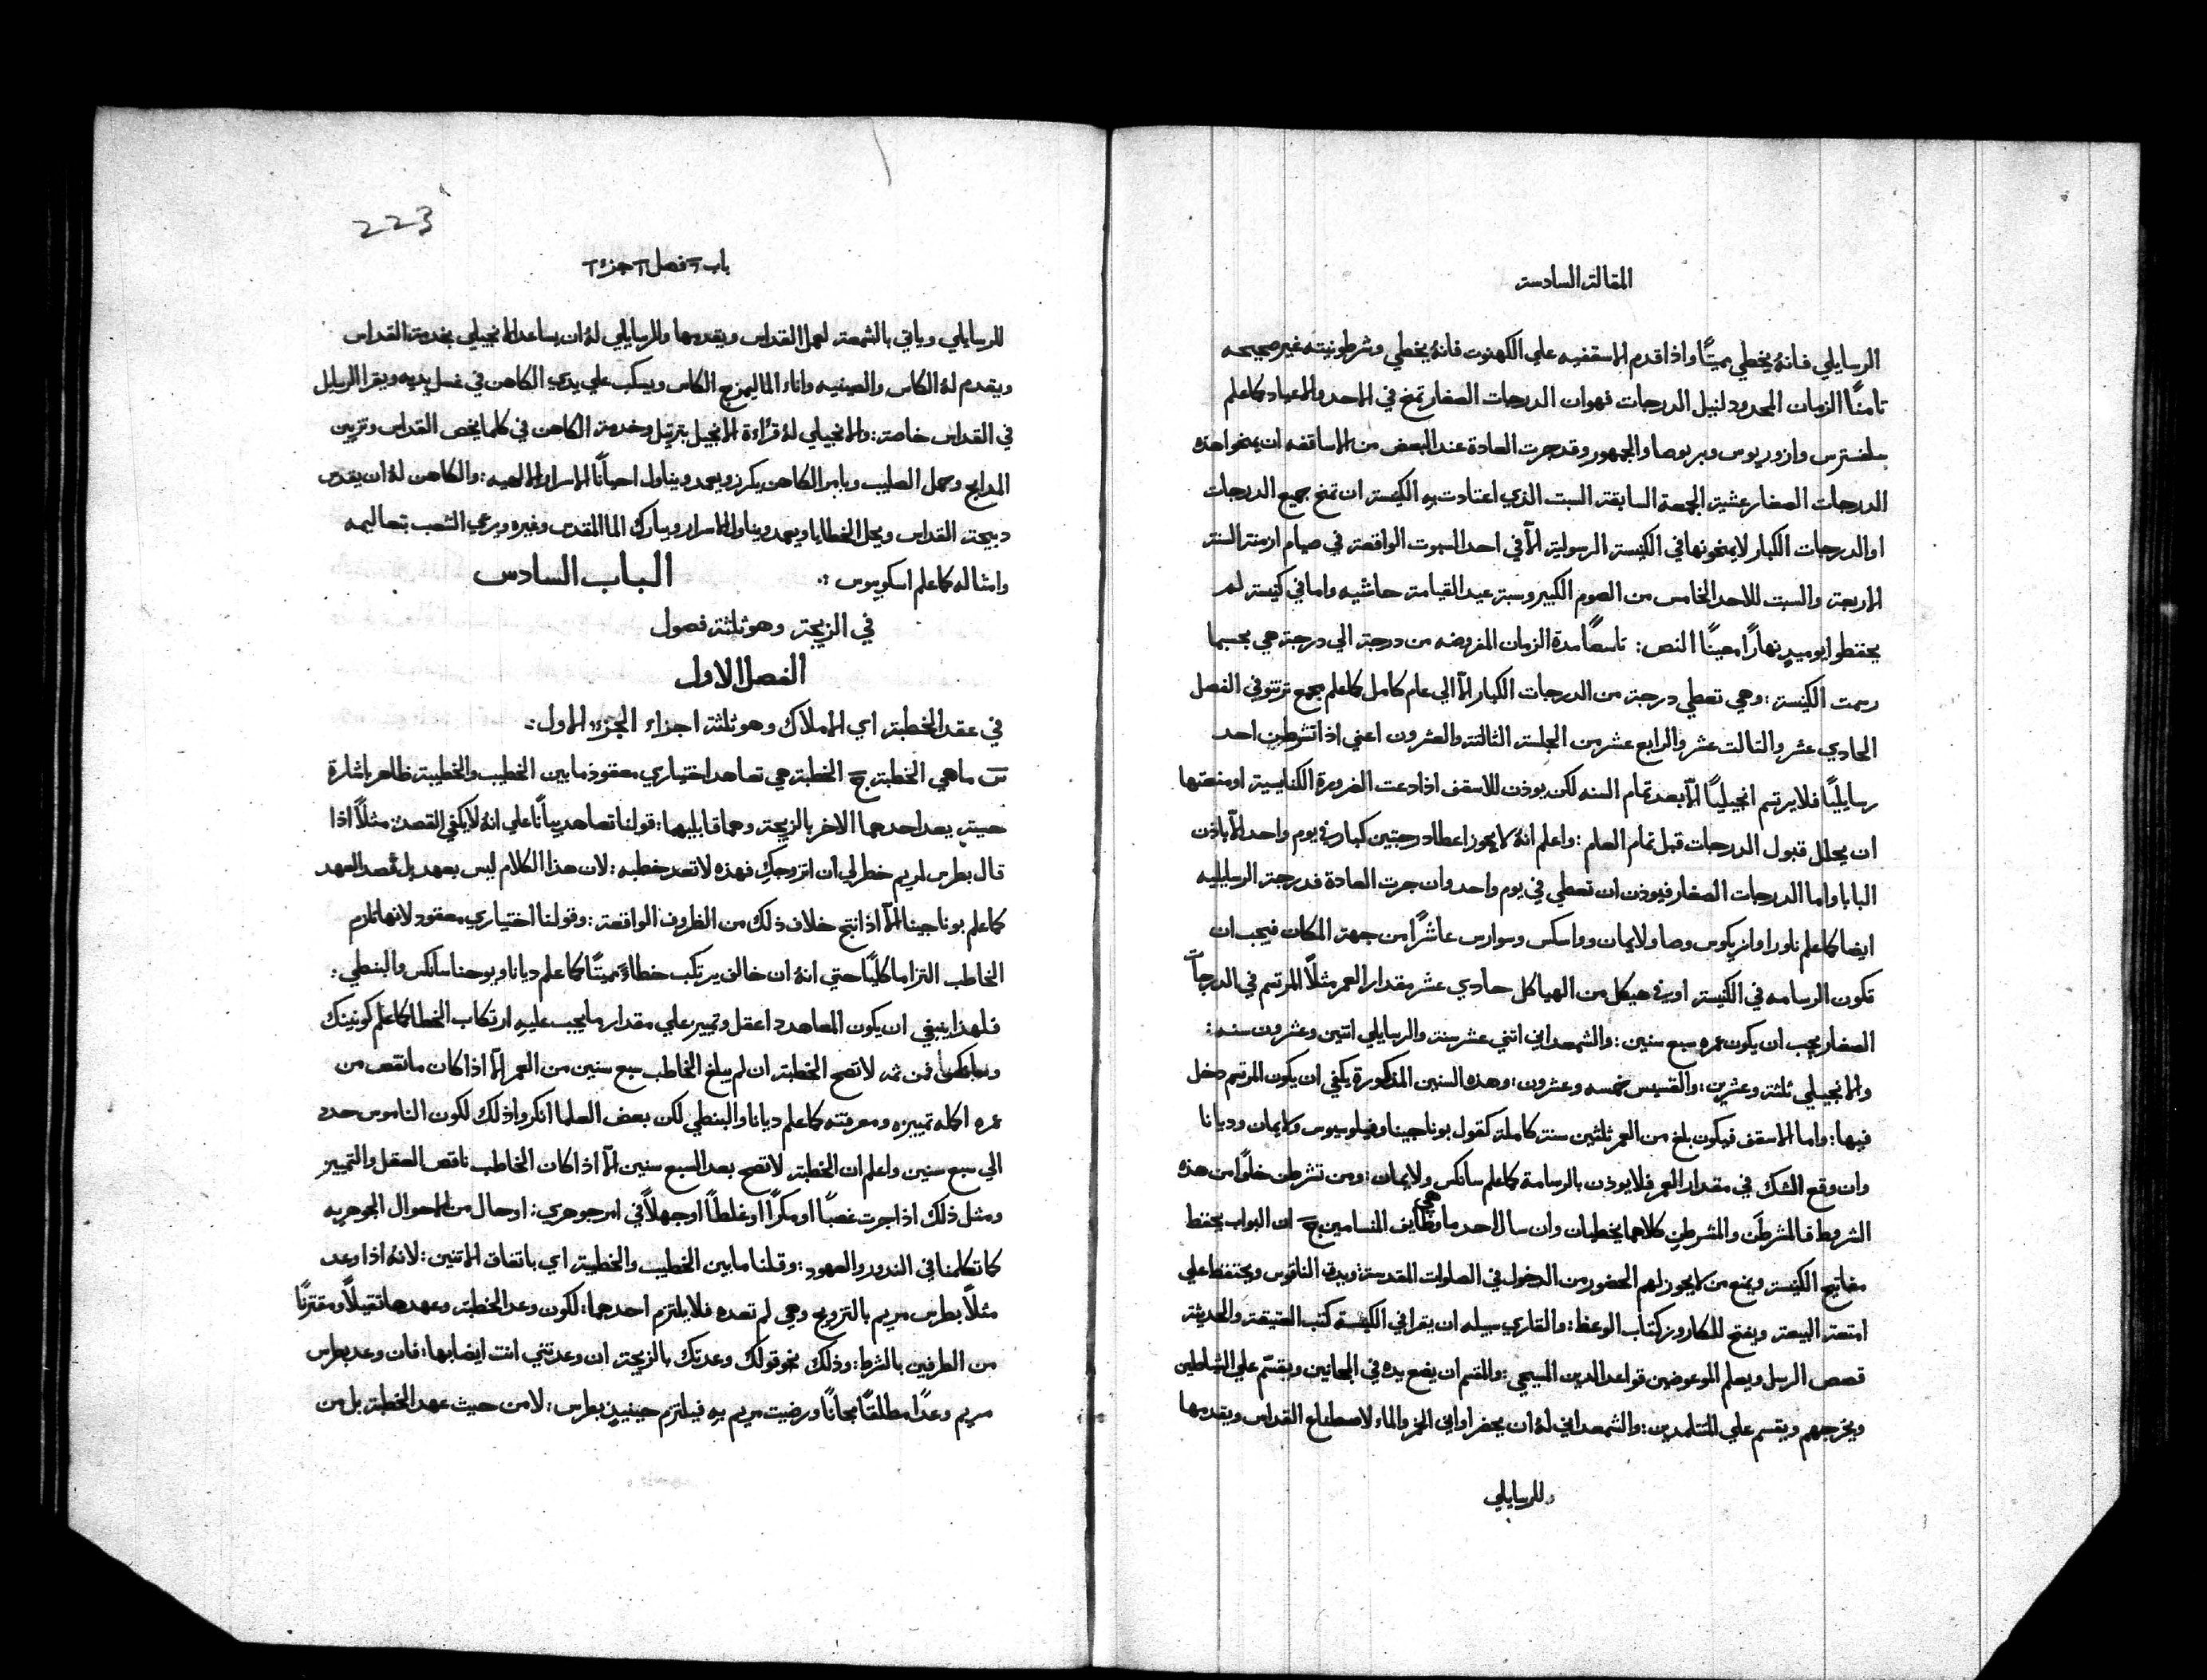 المقالة السادسة
الرسايلي فانهُ يخطي مميتًا واذا قدم الاسقفيه علي الكهنوت فانهُ يخطي وشرطونيته غير صحيحه
ثامنًا الزمان المحدود لنيل الدرجات فهوان الدرجات الصغار تمنح في الاحد والاعياد كماعلم
سلفسترس وازوريوس وبربوصا والجمهور وقد جرت العادة عند البعض من الاساقفه ان يمنحوا هذه
الدرجات الصغار عشية الجمعة السابقة السبت الذي اعتادت به الكنيسة ان تمنح جميع الدرجات
او الدرجات الكبار لا يمنحونها في الكنيسة الرسولية الّا في احد السبوت الواقعة في صيام ازمنة السنة
الاربعة والسبت للاحد الخامس من الصوم الكبير وسبة عيد القيامة حاشيه واما في كنيسة لم
يحفظوا يوميذٍ نهارًا معينًا النص: تاسعًا مدة الزمان المفروضه من درجة الي درجة هي بحسبما
رسمت الكنيسة: وهي تعطي درجة من الدرجات الكبار الّا الي عام كامل كماعلم مجمع ترنتو في الفصل
الحادي عشر والثالت عشر والرابع عشر من الجلسة الثالثة والعشرون اعني اذا تشرطن احد
رسايليًا فلا يرتسم انجيليًا الّا بعد تمام السنه لكن يوذن للاسقف اذا دعت الضرورة الكنايسية او منفعتها
ان يحلل قبول الدرجات قبل تمام العام: واعلم انهُ لا يجوز اعطا درجتين كبار في يوم واحد الّا باذن
البابا واما الدرجات الصغار فيوذن ان تعطي في يوم واحد وان جرت العادة فدرجة الرسايليه
ايضا كماعلم ناورا وانريكوس وصا ولايمان وواسكس وسوارس عاشرًا من جهة المكان فيجب ان
تكون الرسامه في الكنيسة او في هيكل من الهياكل حادي عشر مقدار العمر مثلًا المرتسم في الدرجات
الصغار يجب ان يكون عمره سبع سنين: والشمعداني اثني عشر سنة والرسايلي اثنين وعشرون سنه:
والانجيلي ثلثة وعشرين: والقسيس خمسه وعشرون: وهذه السنين المذكورة يكفي ان يكون المرتسم دخل
فيها: واما الاسقف فيكون بلغ من العمر ثلثين سنة كاملة كقول بوناجينا وفيلوسيوس ولايمان وديانا
وان وقع الشك في مقدار العمر فلا يوذن بالرسامة كماعلم سانكس ولايمان: ومن تشرطن خلوًا من هذه
الشروط فالمشرطَن والمشرطِن كلاهما يخطيان وان سال احد ما هي وظايف المتسامين ج ان البواب يحفظ
مفاتيح الكنيسة ويمنع من لا يجوز لهم الحضور من الدخول في الصلوات المقدسة: ويدق الناقوس ويحتفظ علي
امتعة البيعة ويفتح للكاروز كتاب الوعظ: والقاري سبيله ان يقرا في الكنيسة كتب العتيقة والحديثة
قصص الرسل ويعلم الموعوظين قواعد الدين المسيحي: والمقسم ان يضع يده في المجانين ويقسّم علي الشياطين
ويخرجهم ويقسم علي المتتلمدين: والشمعداني لهُ ان يحضر اواني الخمر والماء لاصطناع القداس ويقدمها
للرسايلي
223
باب ٦ فصل ١ جزء ١
للرسايلي وياتي بالشمعة لعمل القداس ويقدمها وللرسايلي لهُ ان يساعد الانجيلي بخدمة القداس
ويقدم لهُ الكاس والصينيه واناء الما ليمزج الكاس ويسكب علي يدي الكاهن في غسل يديه ويقرا الرسايل
في القداس خاصة: والانجيلي لهُ قراءة الانجيل بترتيل وخدمة الكاهن في كلما يخص القداس وتزيين
المدابح وحمل الصليب وبامر الكاهن يكرز ويعمد ويناول احيانًا الاسرار الالهيه: والكاهن لهُ ان يقدس
دبيحة القداس ويحل الخطايا ويعمد ويناول الاسرار ويبارك الما المقدس وغيره ويرعي الشعب بتعاليمه
وامثاله كماعلم اسكوبوس ⁘ الباب السادس
في الزيجة وهو ثلثة فصول
الفصل الاول
في عقد الخطبة اي الاملاك وهو ثلثة اجزاء الجزء الاول.
س ما هي الخطبة ج الخطبة هي تعاهد اختياري معقود ما بين الخطيب والخطيبة ظاهر باشارة
حيث يعد احدهما الاخر بالزيجة وهما قابليها: قولنا تعاهد بيانًا علي انهُ لا يكفي القصد: مثلًا اذا
قال بطرس لمريم خطر لي ان اتزوجكِ فهذه لا تعد خطبه: لان هذا الكلام ليس بعهد بل قصد العهد
كماعلم بوناجينا الّا اذا نتج خلاف ذلك من الظروف الواقعة: وقولنا اختياري معقود لانها تلزم
الخاطب التزاما كليًا حتي انهُ ان خالف يرتكب خطاءً مميتًا كماعلم ديانا ويوحنا سانكس والبنطي:
فلهذا ينبغي ان يكون المعاهد ذا عقل وتمييز علي مقدار ما يجب عليهِ ارتكاب الخطا كماعلم كونينك
فمن ثمه لا تصح الخطبة ان لم يبلغ الخاطب سبع سنين من العمر الّا اذا كان ما نقص من
عمره اكمله تمييزه ومعرفته كماعلم ديانا والبنطي لكن بعض العلما انكروا ذلك لكون الناموس حدد
الي سبع سنين واعلم ان الخطبة لا تصح بعد السبع سنين الّا اذا كان الخاطب ناقص العقل والتمييز
ومثل ذلك اذا جرت غصبًا او مكرًا او غلطًا او جهلًا في امر جوهري: او حال من الاحوال الجوهريه
كما تكلمنا في الندور والعهود: وقلنا ما بين الخطيب والخطيبة اي باتفاق الاثنين: لانهُ اذا وعد
مثلًا بطرس مريم بالتزويج وهي لم تعده فلا يلتزم احدهما: لكون وعد الخطبة وعهدها ثقيلًا ومقترنًا
من الطرفين بالشرط: وذلك نحو قولك وعدتك بالزيجة ان وعدتني انت ايضا بها: فان وعد بطرس
مريم وعدًا مطلقًا مجانًا ورضيت مريم بهِ فيلتزم حينيذٍ بطرس: لا من حيث عهد الخطبة بل من